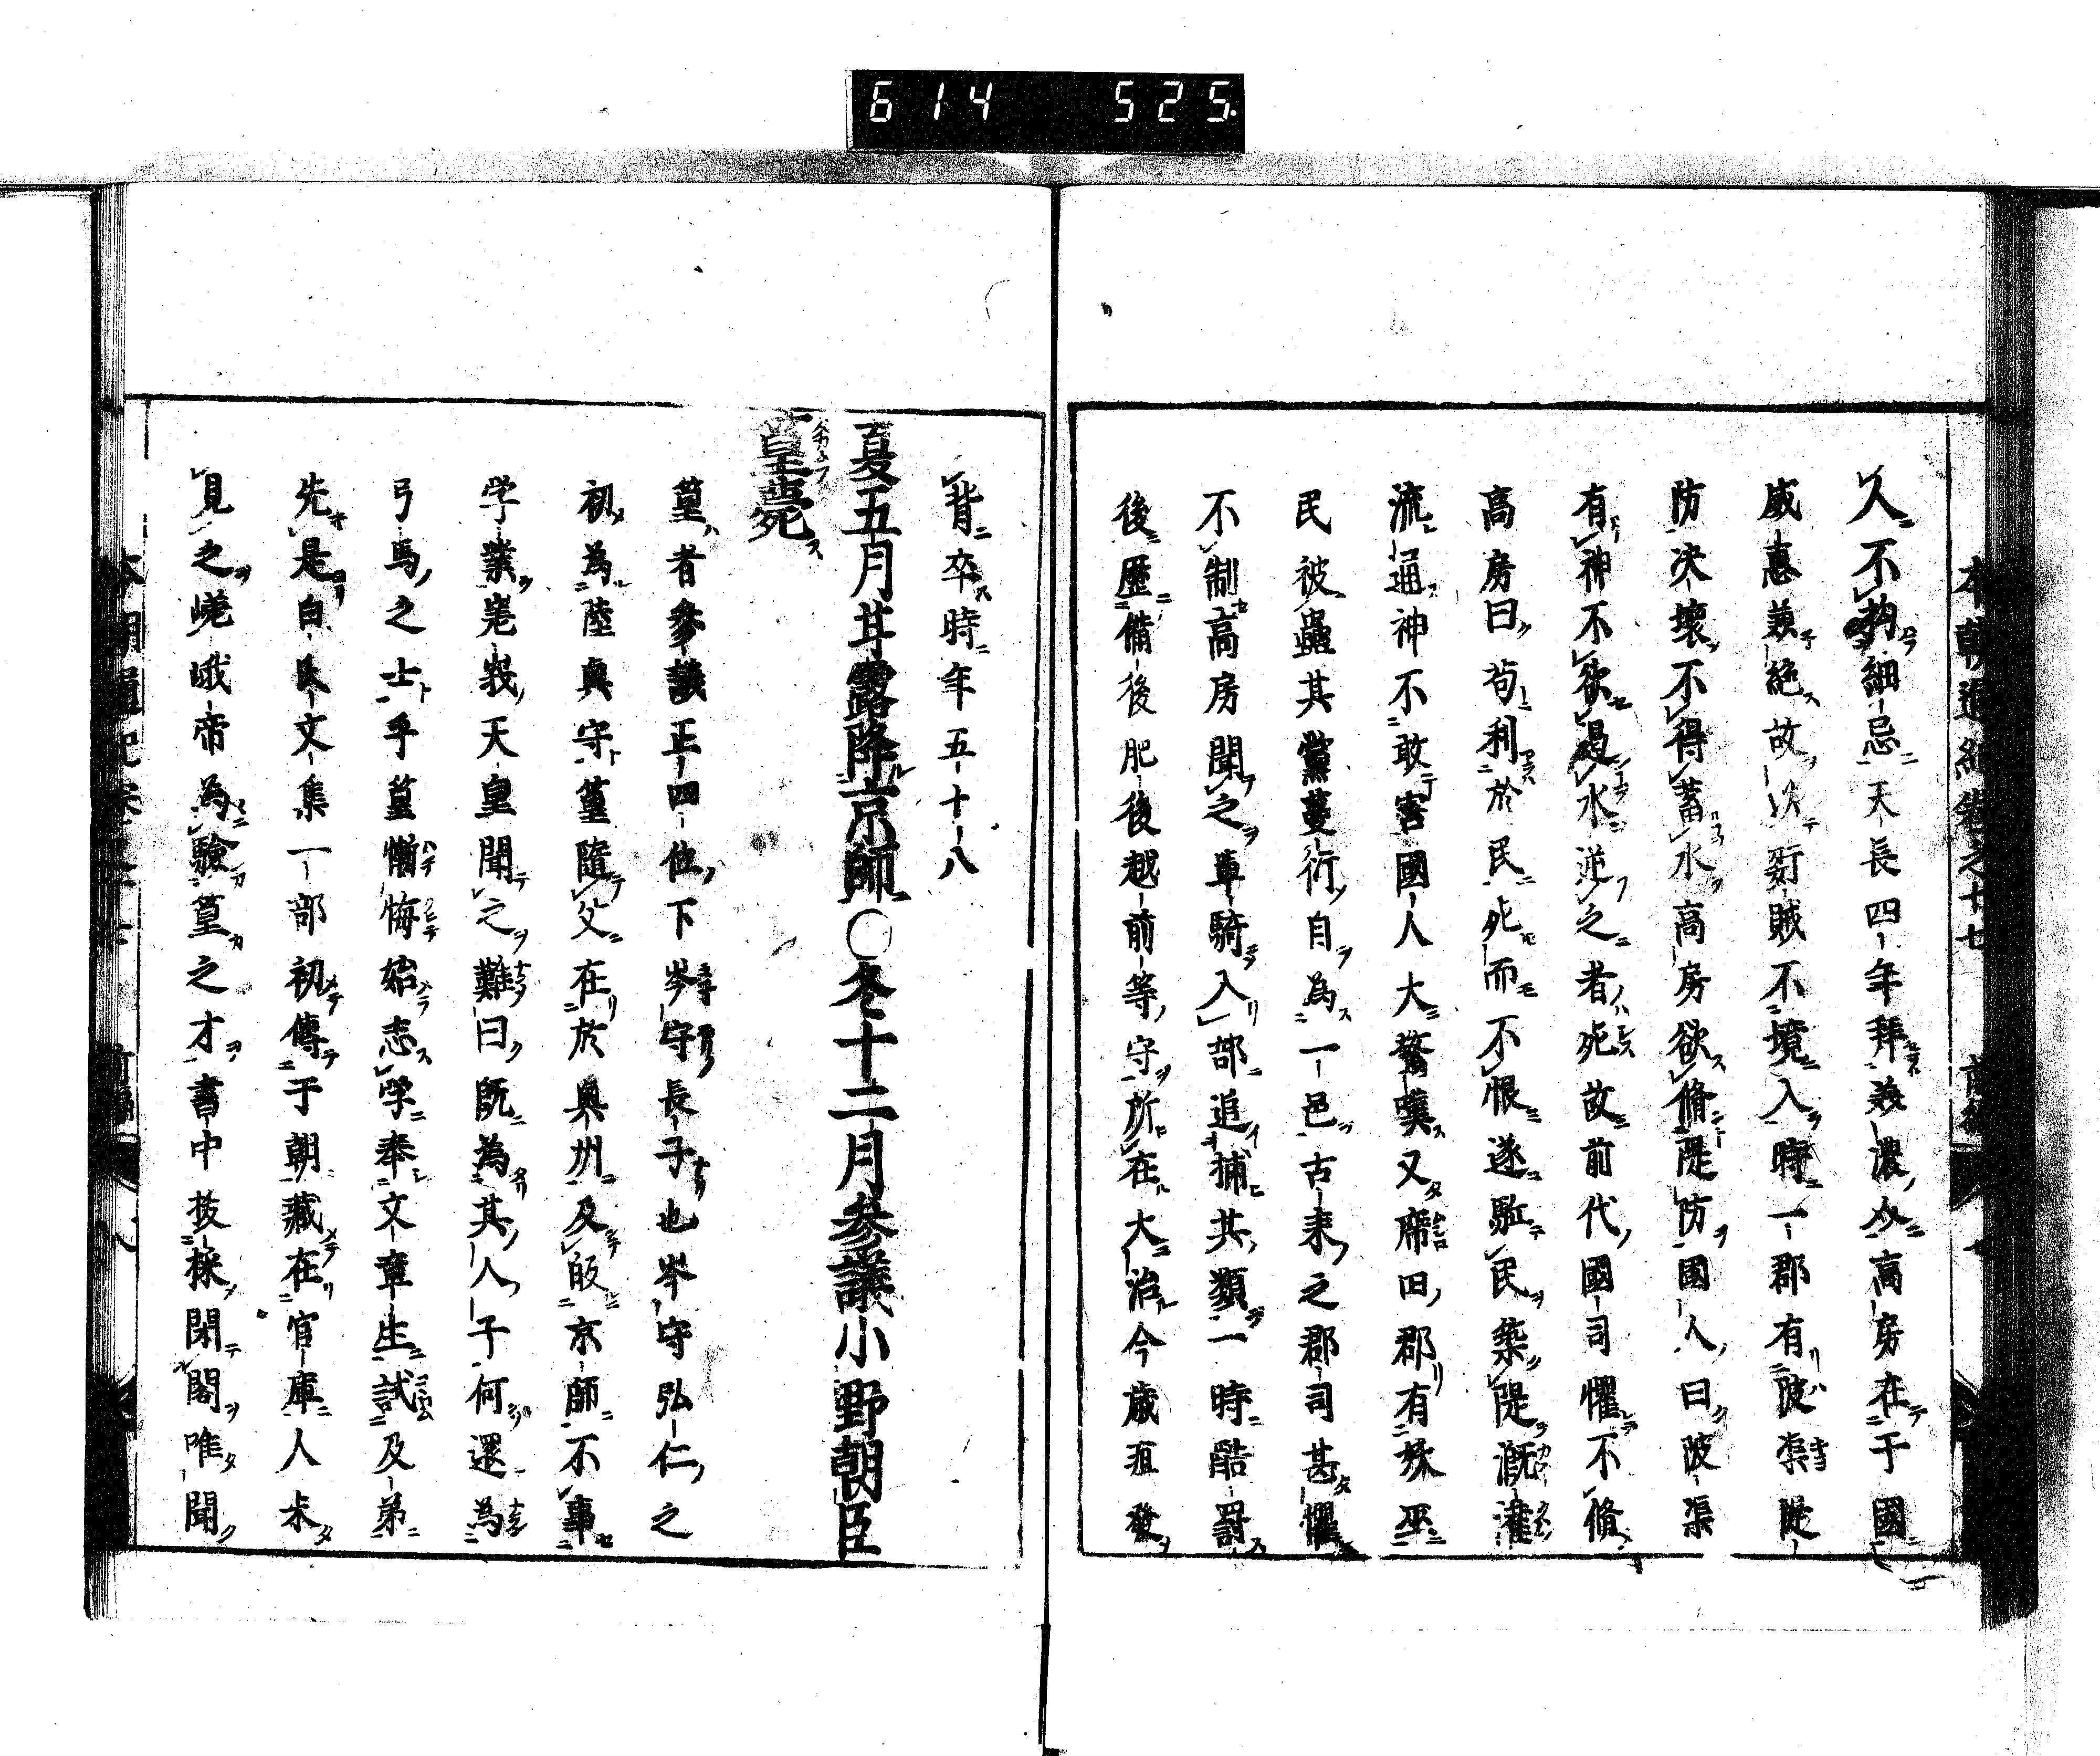 614 525
本朝通紀卷之十七 前編
人不拘細忌天長四年拜羙濃介高房在于國
威惠兼絶故以姧賊不境入時一郡有陂渠隄
防决壞不得蓄水高房欲脩隄防國人曰陂渠
有神不欲遏水逆之者死故前代國司懼不脩
高房曰苟利於民死而不恨遂駈民築隄漑灌
流通神不敢害國人大驚嘆又席田郡有妖巫
民被蠱其黨蔓衍自為一邑古来之郡司甚懼
不制高房聞之單騎入部追捕其類一時酷罸
後歷備後肥後越前等守所在大治今歳疽發
背卒時年五十八
夏五月甘露降京師〇冬十二月參議小野朝臣
篁薨
篁者參議正四位下岑守長子也岑守弘仁之
初為陸奥守篁隨父在於奥州及皈京師不事
学業嵳峩天皇聞之難曰既為其人子何還為
弓馬之士乎篁慚悔始志学奉文章生試及弟
先是白氏文集一部初傳于朝藏在官庫人未
見之嵯峨帝為驗篁之才書中抜採閉閣唯聞